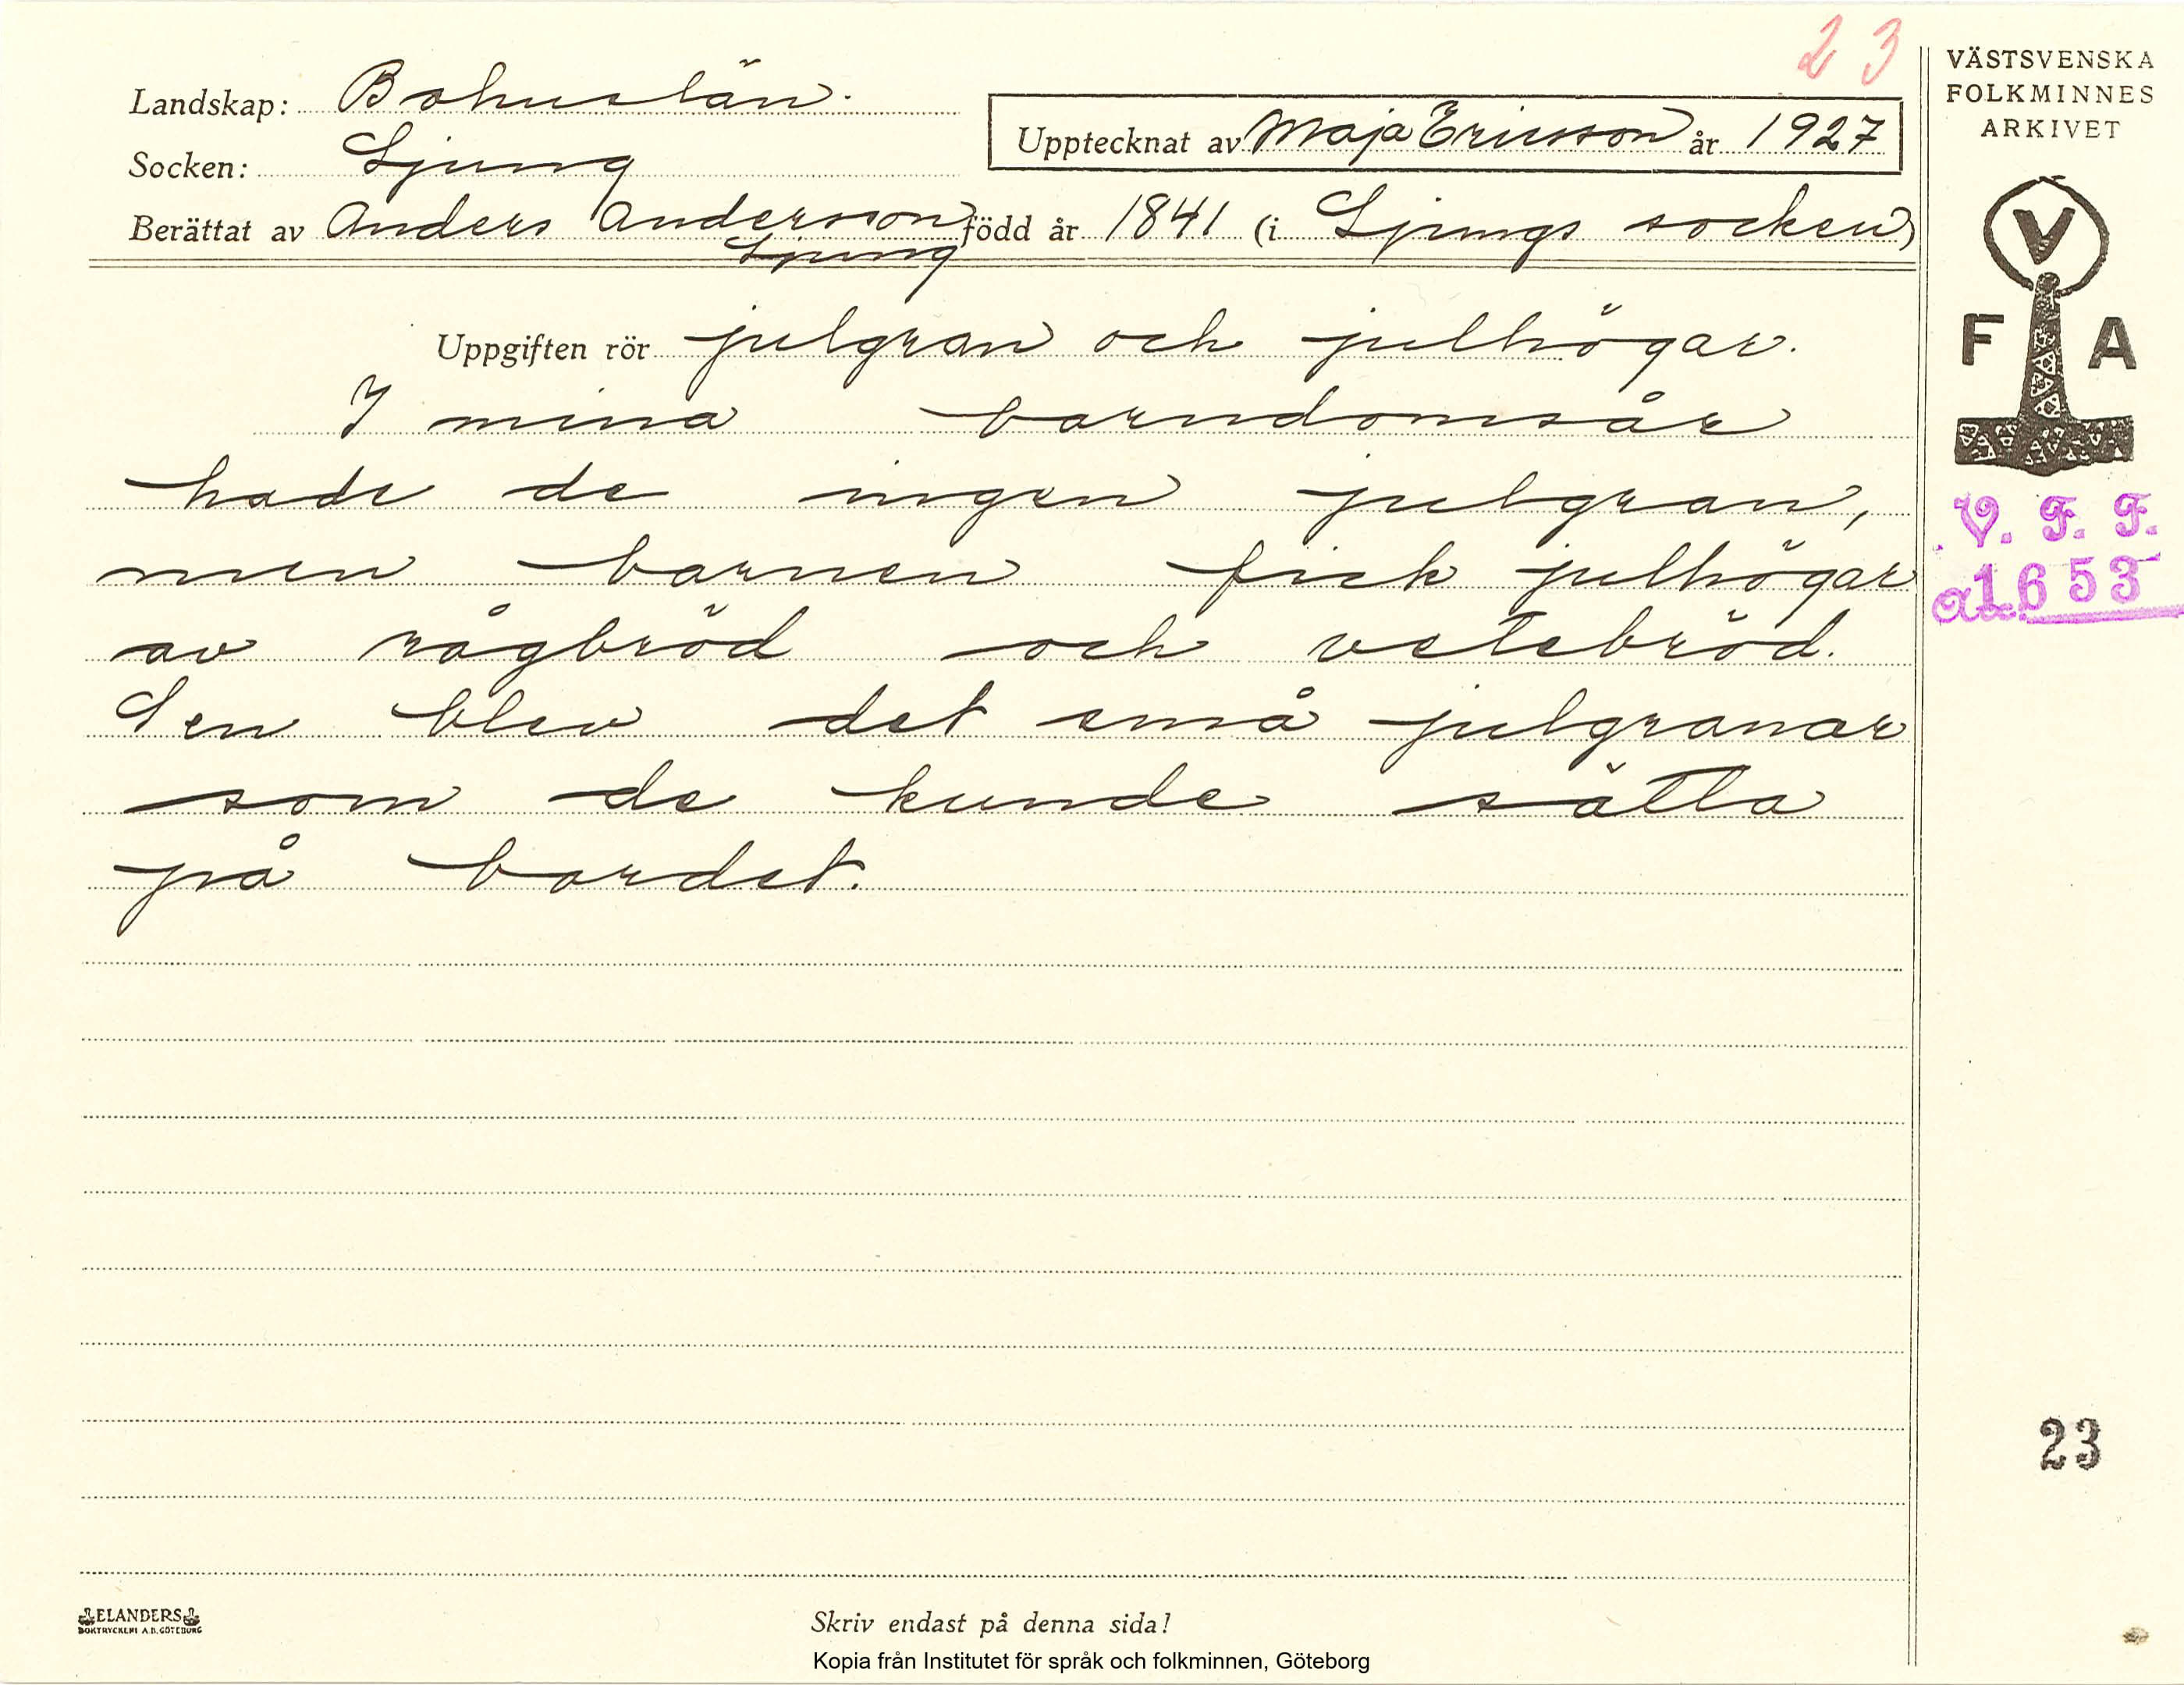 23
Landskap: Bohuslän.
Socken: Ljung
Upptecknat av Maja Ericsson år 1927
Berättat av Anders Andersson född år 1841 (i Ljungs socken)
Ljung
Uppgiften rör julgran och julhögar.
I mina barndomsår
hade de ingen julgran,
men barnen fick julhögar
av rågbröd och vetebröd.
Sen blev det små julgranar
som de kunde sätta
på bordet.
VÄSTSVENSKA
FOLKMINNES
ARKIVET
V
F A
V. F. F.
a1653
23
ELANDERS
BOKTRYCKERI A.B. GÖTEBORG
Skriv endast på denna sida!
Kopia från Institutet för språk och folkminnen, Göteborg